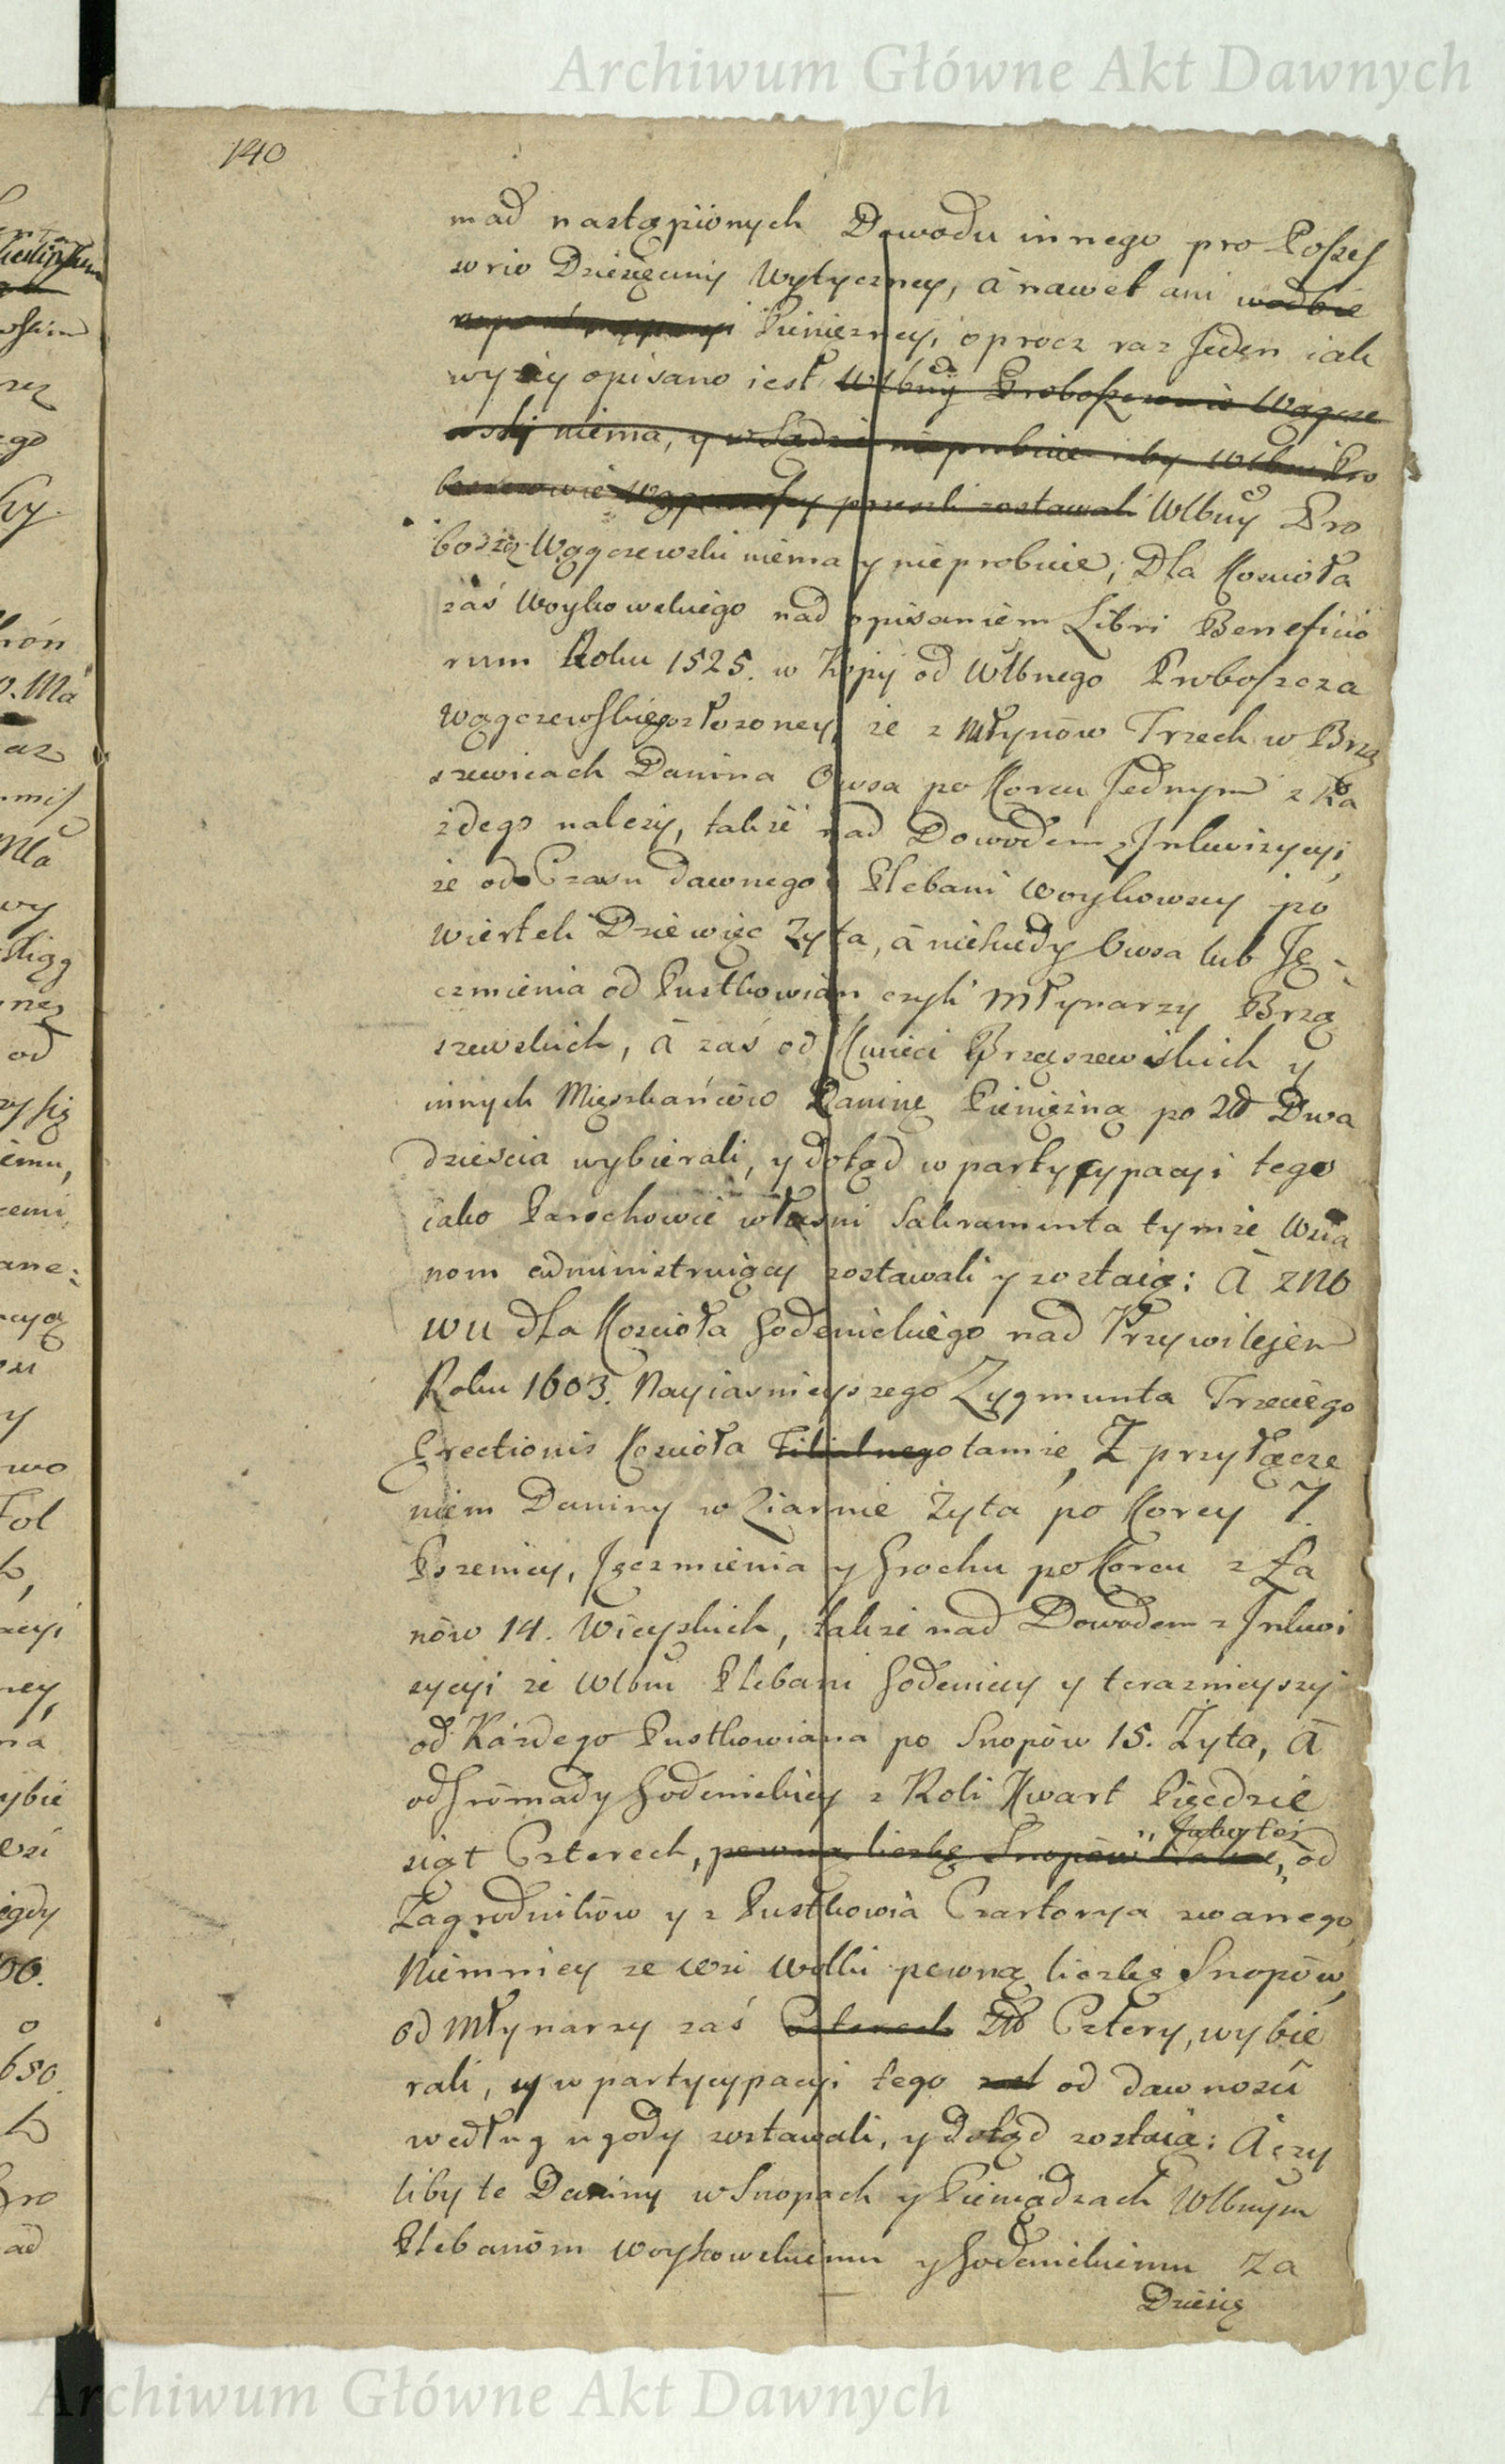 Archiwum Główne Akt Dawnych
140
nad nastąpionych Dowodu innego pro Possess
sorio Dziesięciny Wytyczney, á nawet ani
Pieniężney, oprocz raz Jeden iak
wyżey opisano iest Wlbny Proboszczowie Wągcze
wsky niema, y w Sądzie nieprobuie żeby Wlbni Pro
boszczowie Wągczewscy przeszli zostawali Wlbny Pro
boszcz Wągczewski niema y nieprobuie; Dla Kościoła
zaś Woykowskiego nad opisaniem Libri Beneficio
rum Roku 1525. w Kopij od Wlbnego Proboszcza
Wągczewskiego złożoney, że z Młynów Trzech w Brzą
szewicach Danina Owsa po Korcu Jednym z Ka
żdego należy, także nad Dowodem z Inkwizycyi,
że od Czasu dawnego Plebani Woykowscy po
wierteli Dziewięć Zyta, á niekiedy Owsa lub Ję-
czmienia od Pustkowian czyli Młynarzy Brzą
szewskich, á zaś od Kmieci Brząszewskich y
innych Mięszkańców Daninę Pieniężną po Zł Dwa
dzieścia wybierali, y dotąd w partycypacyi tego
iako Parochowie własni Sakramenta tymże Wsia
nom administruiący zostawali y zostaią: Á zno
wu dla Kościoła Godynickiego nad Przywilejem
Roku 1603. Nayiaśnieyszego Zygmunta Trzeciego
Erectionis Kościoła Filialnego tamże, Z przyłącze
niem Daniny w Ziarnie Żyta po Korcy 7.
Pszenicy, Jęczmienia y Grochu po Korcu z Ła
nów 14. Wieyskich, także nad Dowodem z Inkwi
zycyi że Wlbni Plebani Godyniccy y teraźnieyszy
od Każdego Pustkowiana po Snopów 15. Zyta, Á
od Gromady Godynickiey z Roli Kwart Pięćdzie
siąt Czterech, pewną liczbę Snopów, od
Zagrodników y z Pustkowia Czartorya zwanego,
Niemniey ze wsi Wolki pewną liczbę Snopów,
od Młynarzy zaś Czterech Zł Cztery, wybie
rali, y w partycypacyi tego od dawności
według ugody zostawali, y dotąd zostaią: Á czy
liby te Daniny w Snopach y Pieniądzach Wlbnym
Plebanóm Woykowskiemu y Godynickiemu Za
Dziesię
Archiwum Główne Akt Dawnych